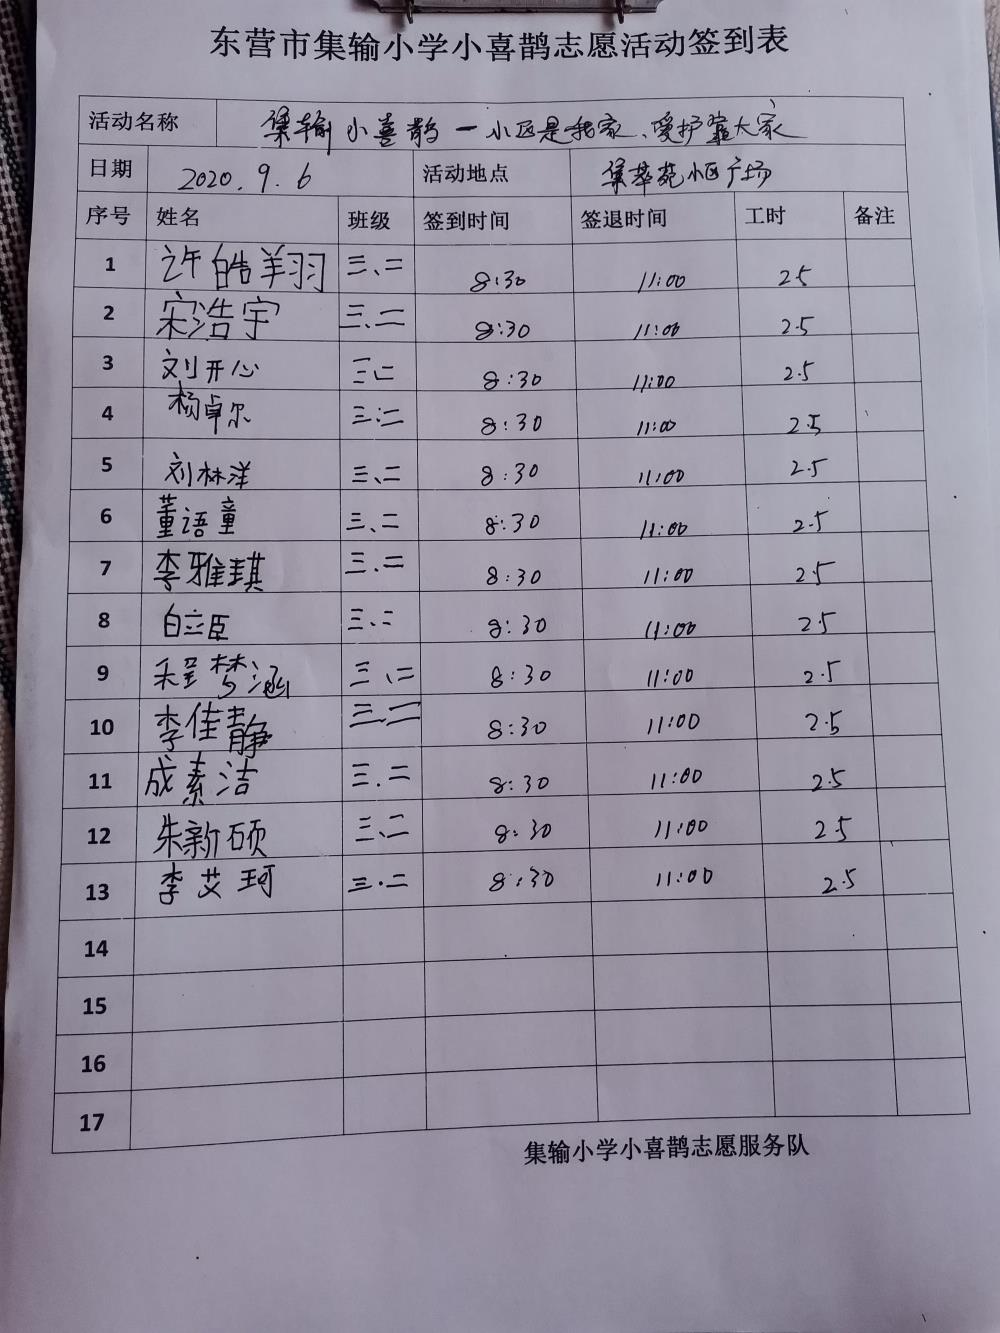 东营市集输小学小喜鹊志愿活动签到表
活动名称 集输小喜鹊一小区是我家、爱护靠大家
日期 2020.9.6 活动地点 集萃苑小区广场
序号 姓名 班级 签到时间 签退时间 工时 备注
1 许皓羊羽 三、二 8:30 11:00 25
2 宋浩宇 三、二 8:30 11:00 2.5
3 刘开心 三二 8:30 11:00 2.5
4 杨卓尔 三.二 8:30 11:00 2.5
5 刘林洋 三、二 8:30 11:00 2.5
6 董语童 三、二 8:30 11:00 2.5
7 李雅琪 三.二 8:30 11:00 2.5
8 白立臣 三.二 8:30 11:00 2.5
9 程梦涵 三、二 8:30 11:00 2.5
10 李佳静 三二 8:30 11:00 2.5
11 成素洁 三.二 8:30 11:00 2.5
12 朱新硕 三、二 8:30 11:00 2.5
13 李艾珂 三.二 8:30 11:00 2.5
14
15
16
17
集输小学小喜鹊志愿服务队